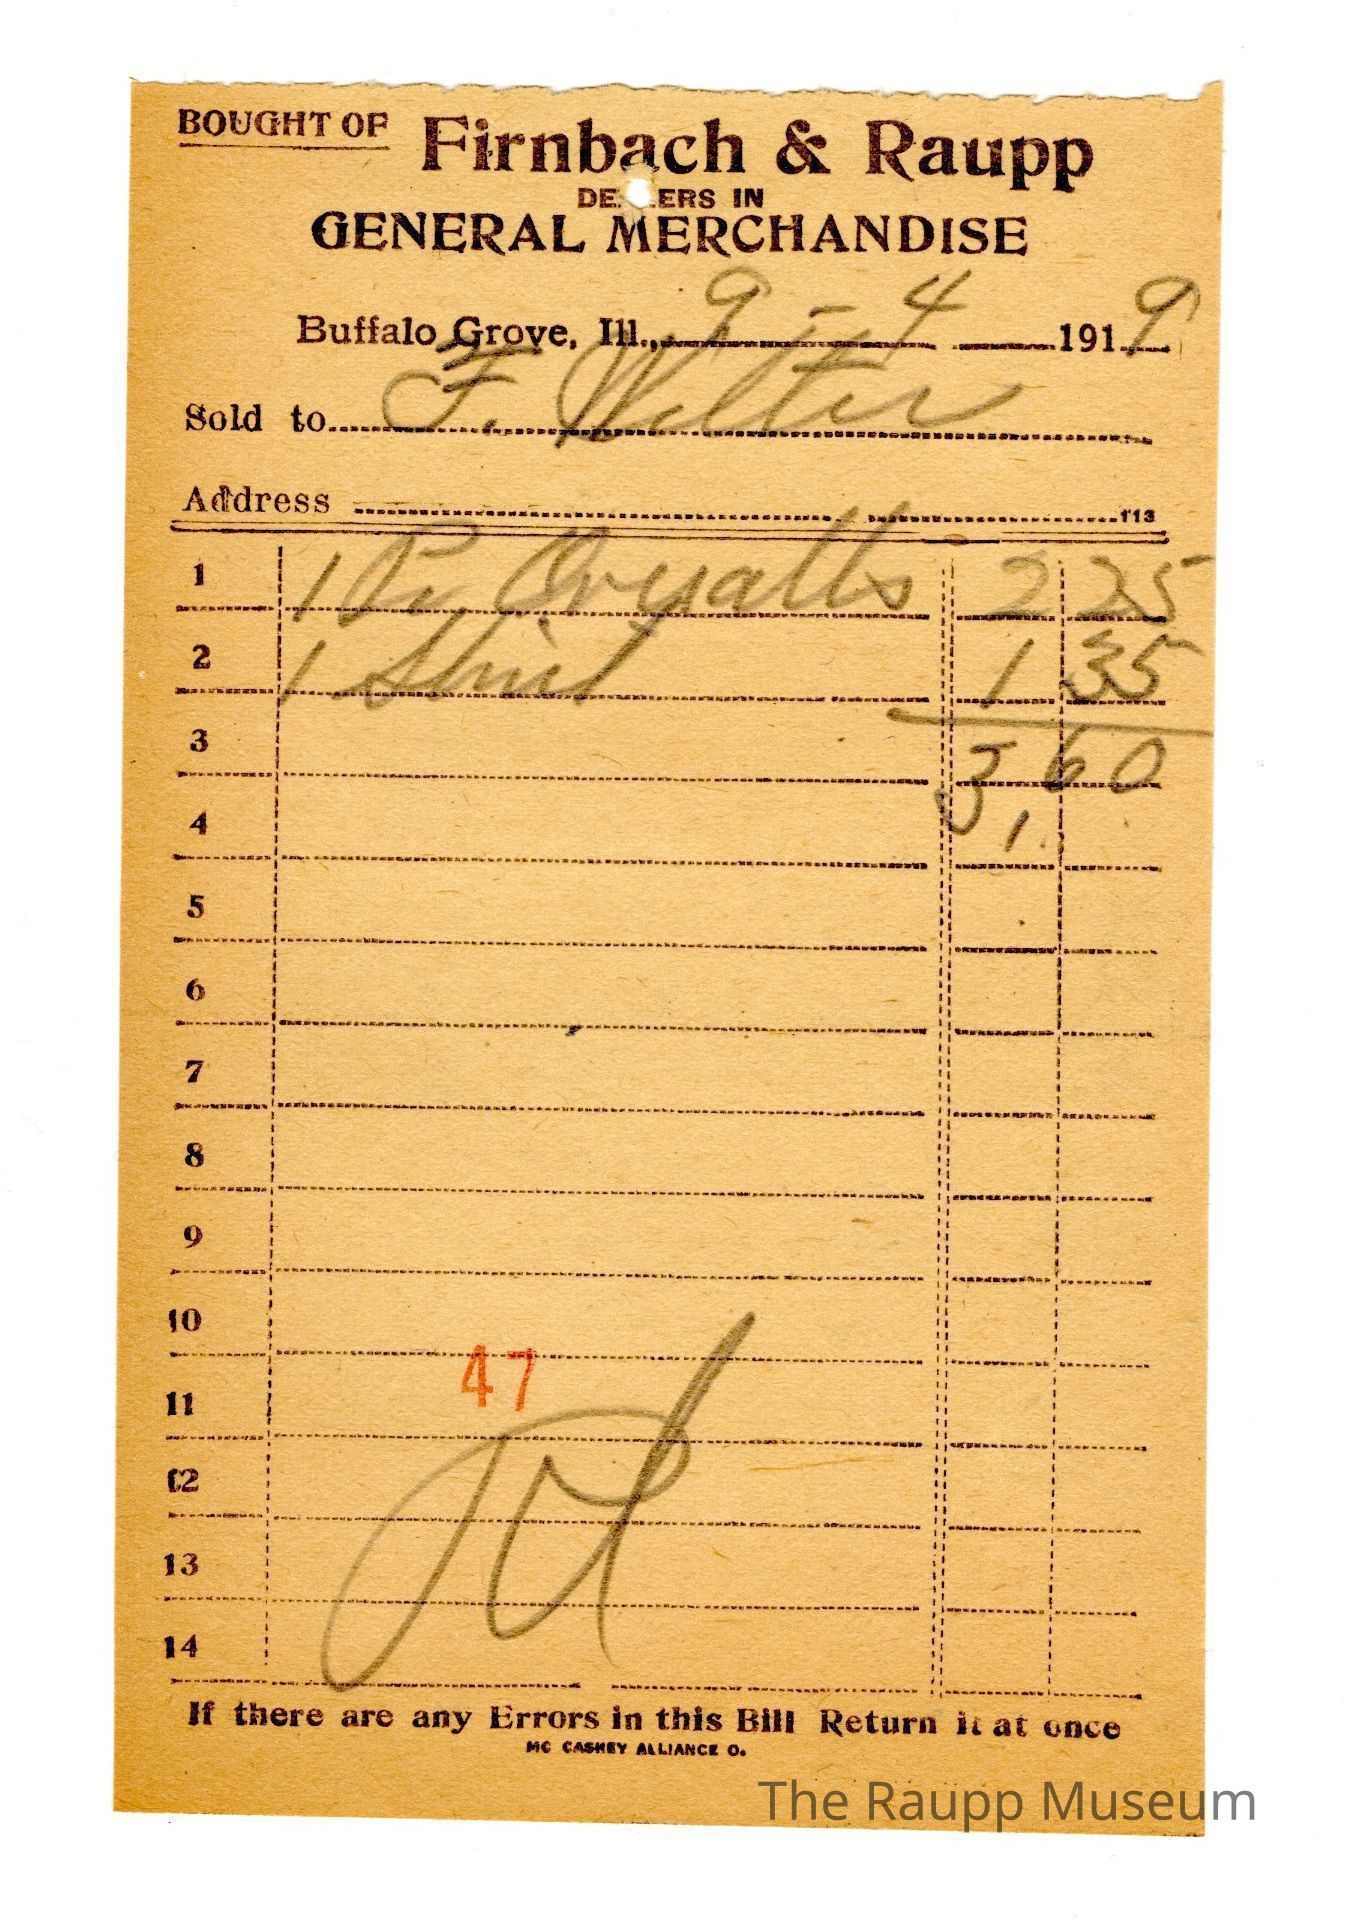 BOUGHT OF Firnbach & Raupp
DEALERS IN
GENERAL MERCHANDISE
Buffalo Grove, Ill., 9 - 4 1919
Sold to F. Wilter
Address 113
1 1 Pr Overalls 2 25
2 1 Shirt 1 35
3 3,60
4
5
6
7
8
9
10
47
11
12
13
14
If there are any Errors in this Bill Return it at once
MC CASKEY ALLIANCE O.
The Raupp Museum